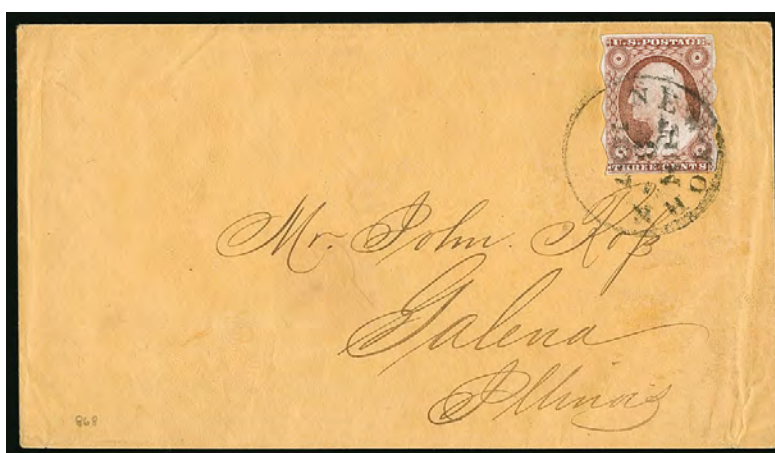 U.S. POSTAGE
THREE CENTS
Mr. John. Roß
Galena
Illinois
868